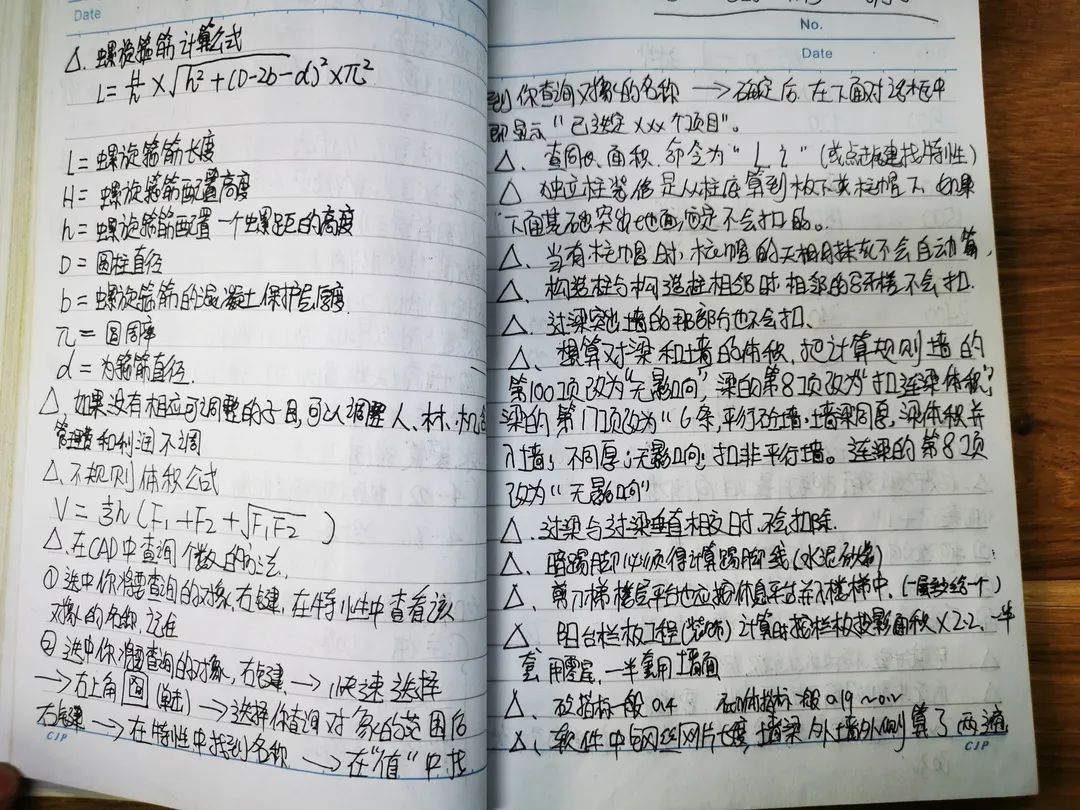 Date
△. 螺旋箍筋计算公式
L=H/h×√h²+(D-2b-d)²×π²
L=螺旋箍筋长度
H=螺旋箍筋配置高度
h=螺旋箍筋配置一个螺距的高度
D=圆柱直径
b=螺旋箍筋的混凝土保护层厚度
π=圆周率
d=为箍筋直径.
△. 如果没有相应可调整的子目,可以调整人、材、机,
管理费和利润不调
△. 不规则体积公式
V=⅓h(F₁+F₂+√F₁F₂)
△. 在CAD中查询个数的方法.
①选中你将要查询的对象,右键,在特性中查看该
对象的名称,记住
②选中你将要查询的对象,右键→快速选择
→右上角图(单击)→选择你查询对象的范围后
右键→在特性中找到名称→在“值”中找
CIP
No.
Date
到你查询对象的名称→确定后.在下面对话框中
即显示“已选定XXX个项目”。
△. 查周长、面积,命令为“L i”(或点击右键找特性)
△. 独立柱装修是从柱底算到板下或柱帽下,如果
下面基础突出地面,它不会扣的。
△. 当有柱帽时,柱帽的天棚抹灰不会自动算,
△. 构造柱与构造柱相邻时,相邻的马牙槎不会扣.
△. 过梁突出墙的那部分也不会扣、
△. 想算对梁和墙的体积,把计算规则墙的
第100项改为“无影响”,梁的第8项改为“扣连梁体积”,
梁的第17项改为“6条,平行砼墙:墙梁同厚,梁体积并
入墙;不同厚:无影响;扣非平行墙。连梁的第8项
改为“无影响”
△. 过梁与过梁垂直相交时.不会扣除.
△. 暗踢脚必须得计算踢脚线(水泥砂浆)
△. 剪刀梯楼层平台也应按休息平台并入楼梯中.
△. 阳台栏板工程(装饰)计算时按栏板投影面积×2.2、一半
套用零星.一半套用墙面
△. 砼指标一般0.4 砌体指标一般0.19~0.2
△. 软件中钢丝网片长度,墙梁外墙外侧算了两遍
CIP